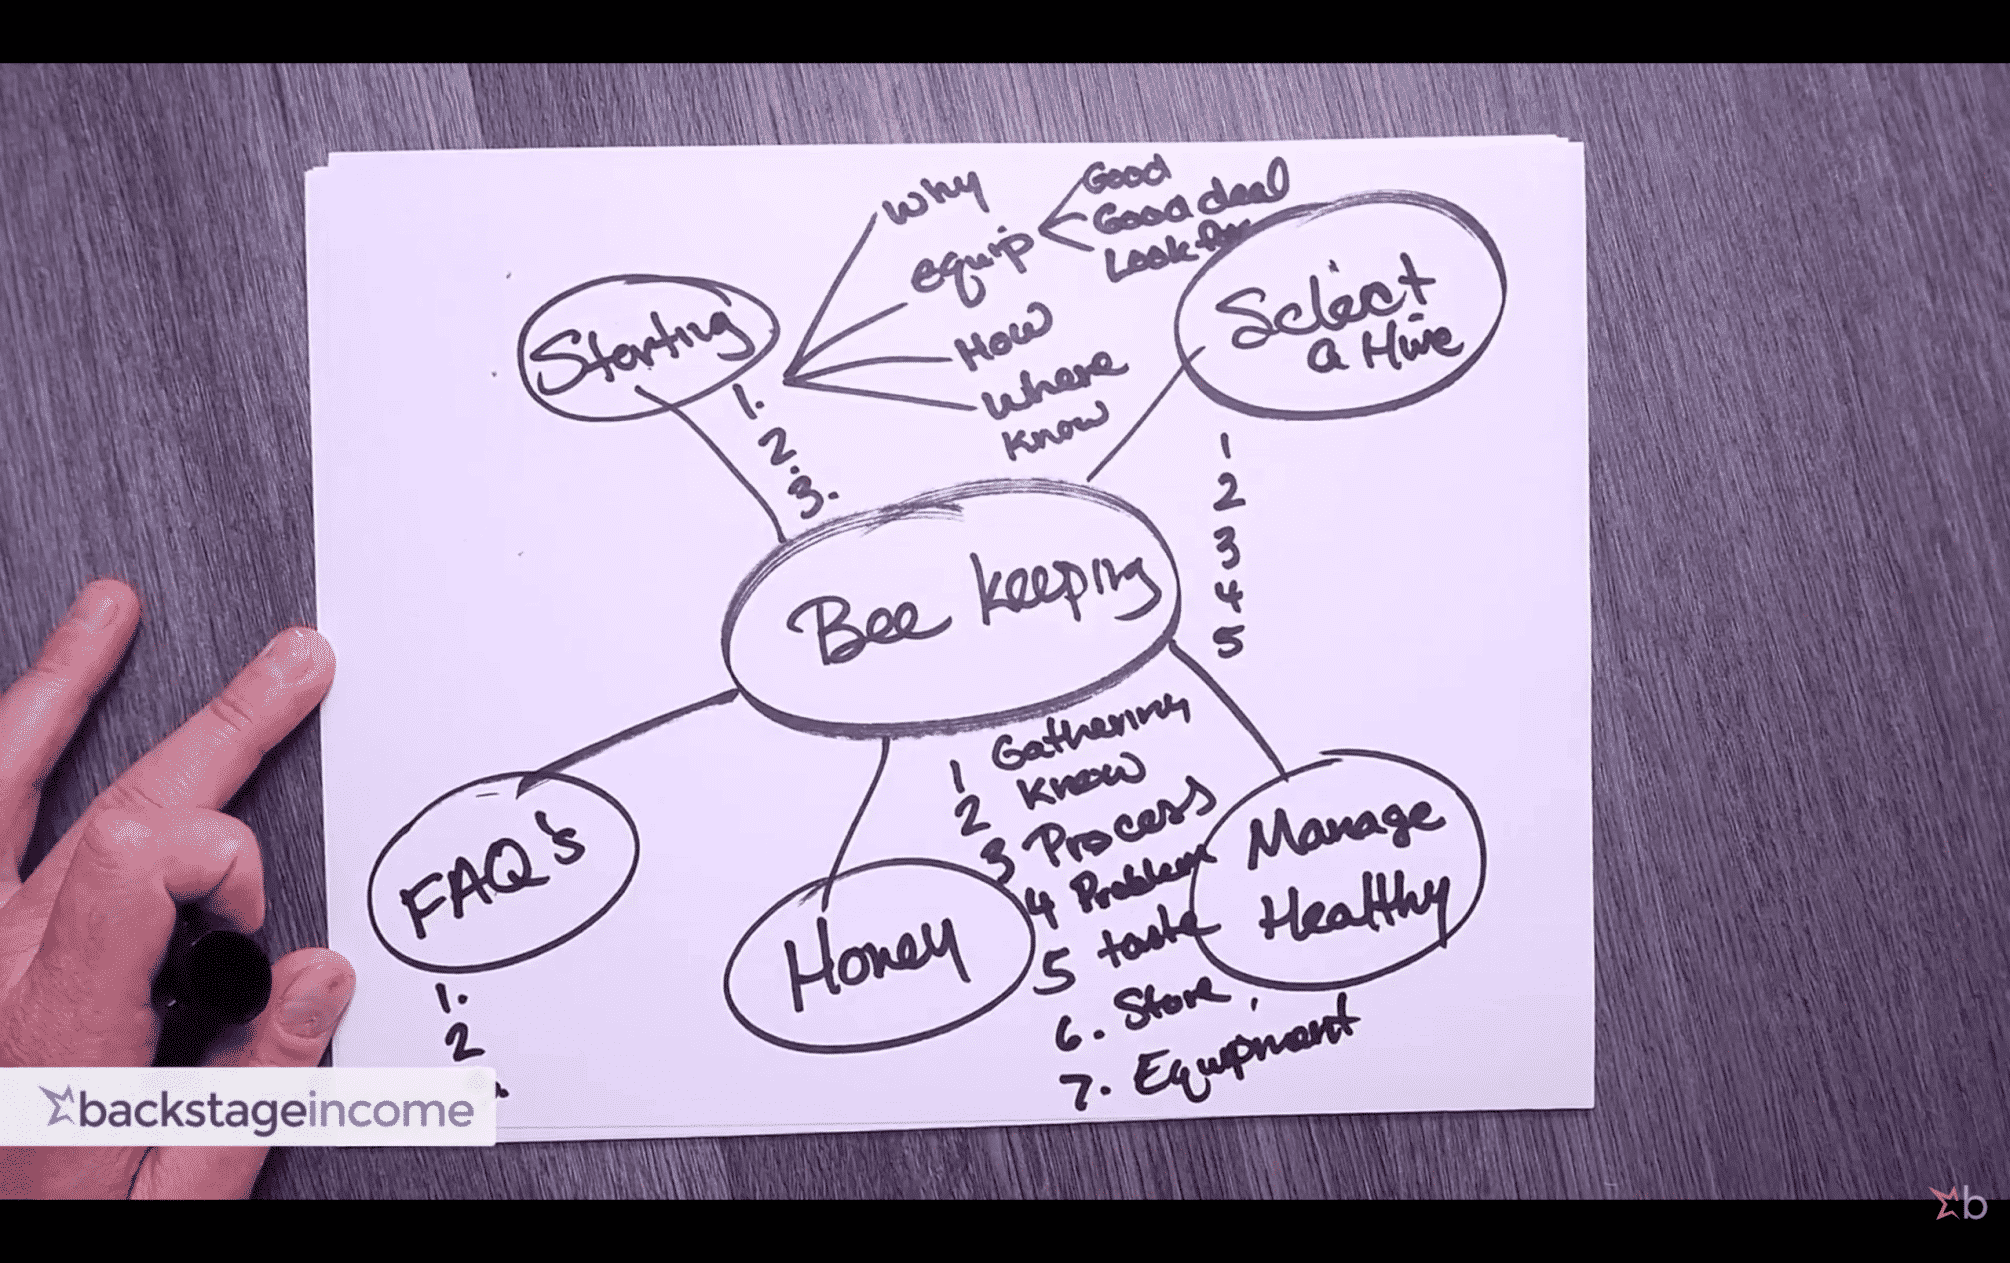 Why
equip
Good
Good deal
Look for
How
Where
Know
Starting
1.
2.
3.
Select
a Hive
1
2
3
4
5
Bee keeping
1 Gathering
2 Know
3 Process
4 Problem
5 taste
6. Store
7. Equipment
Manage
Healthy
Honey
FAQ's
1.
2
backstageincome
b